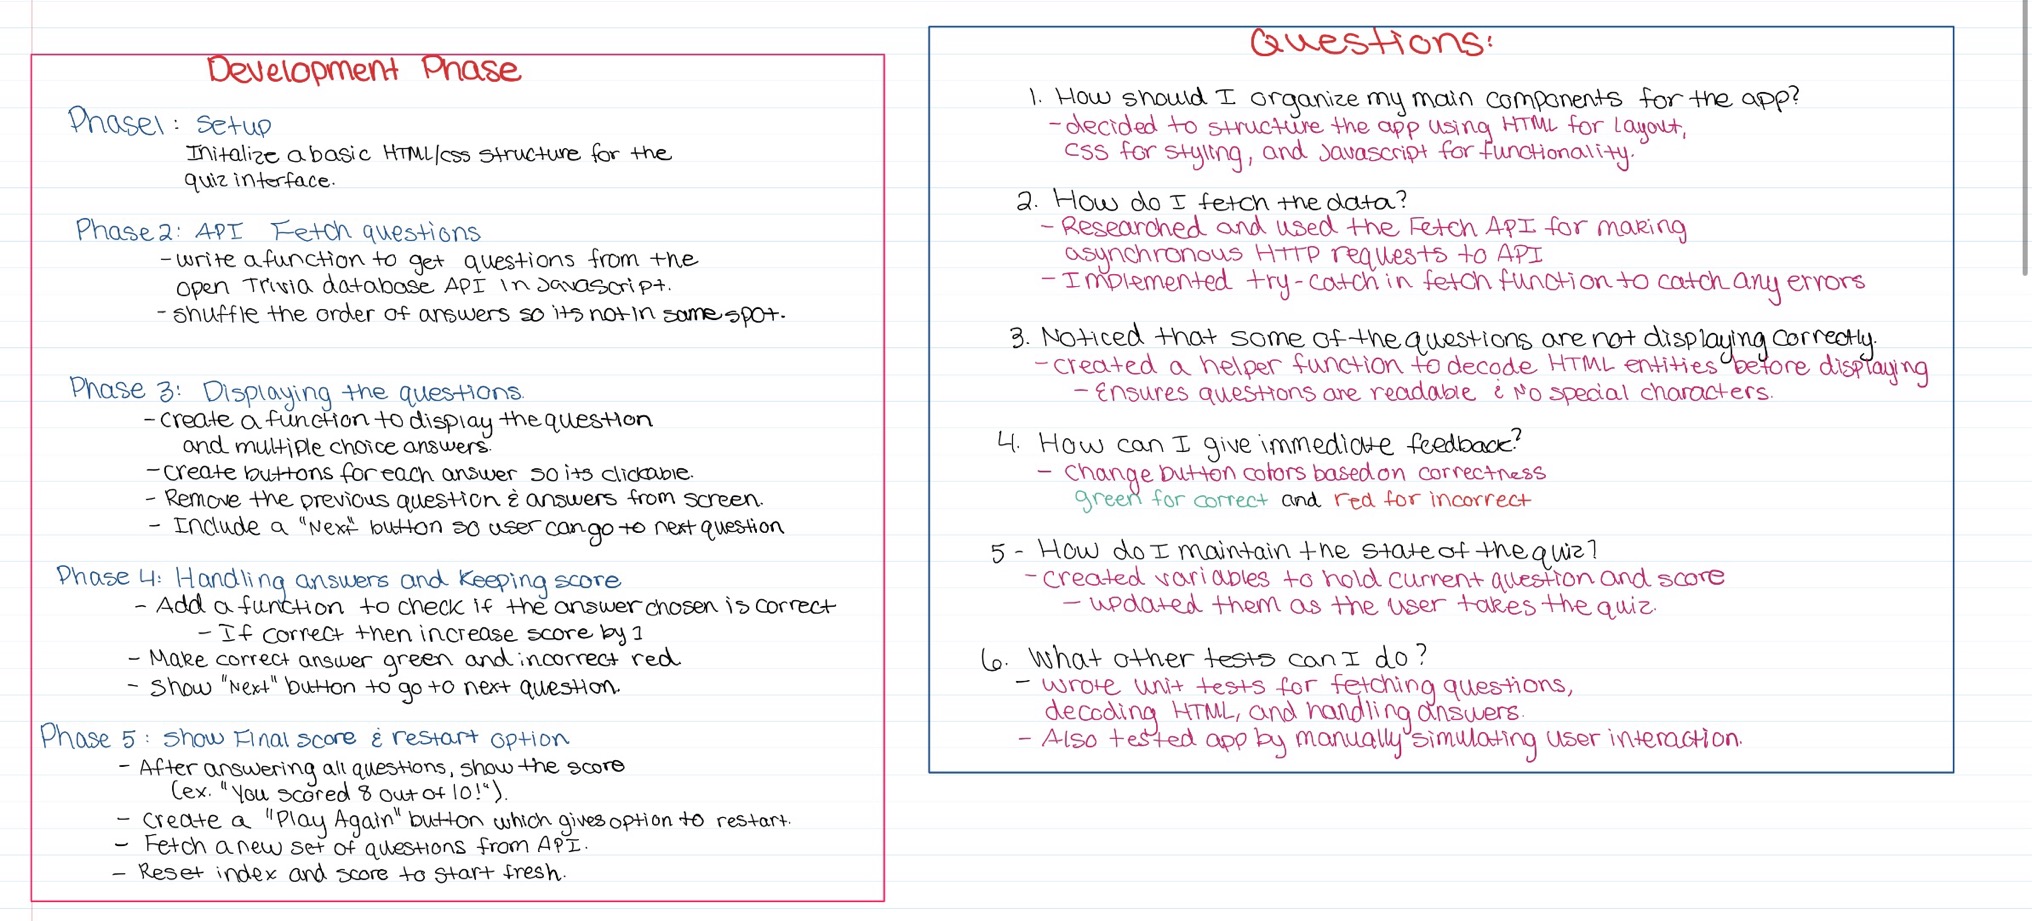 Development Phase
Phase1: Setup
Initalize a basic HTML/css structure for the
quiz interface.
Phase 2: API Fetch questions
- write a function to get questions from the
open Trivia database API in Javascript.
- shuffle the order of answers so its not in same spot.
Phase 3: Displaying the questions.
- create a function to display the question
and multiple choice answers.
- create buttons for each answer so its clickable.
- Remove the previous question & answers from screen.
- Include a "Next" button so user can go to next question
Phase 4: Handling answers and Keeping score
- Add a function to check if the answer chosen is correct
- If correct then increase score by 1
- Make correct answer green and incorrect red
- Show "Next" button to go to next question.
Phase 5: Show Final score & restart option
- After answering all questions, show the score
(ex. "You scored 8 out of 10!").
- Create a "Play Again" button which gives option to restart.
- Fetch a new set of questions from API.
- Reset index and score to start fresh.
Questions:
1. How should I organize my main components for the app?
- decided to structure the app using HTML for layout,
CSS for styling, and Javascript for functionality.
2. How do I fetch the data?
- Researched and used the Fetch API for making
asynchronous HTTP requests to API
- Implemented try-catch in fetch function to catch any errors
3. Noticed that some of the questions are not displaying correctly.
- created a helper function to decode HTML entities before displaying
- Ensures questions are readable & No special characters.
4. How can I give immediate feedback?
- change button colors based on correctness
green for correct and red for incorrect
5 - How do I maintain the state of the quiz?
- created variables to hold current question and score
- updated them as the user takes the quiz.
6. What other tests can I do?
- wrote unit tests for fetching questions,
decoding HTML, and handling answers.
- Also tested app by manually simulating user interaction.